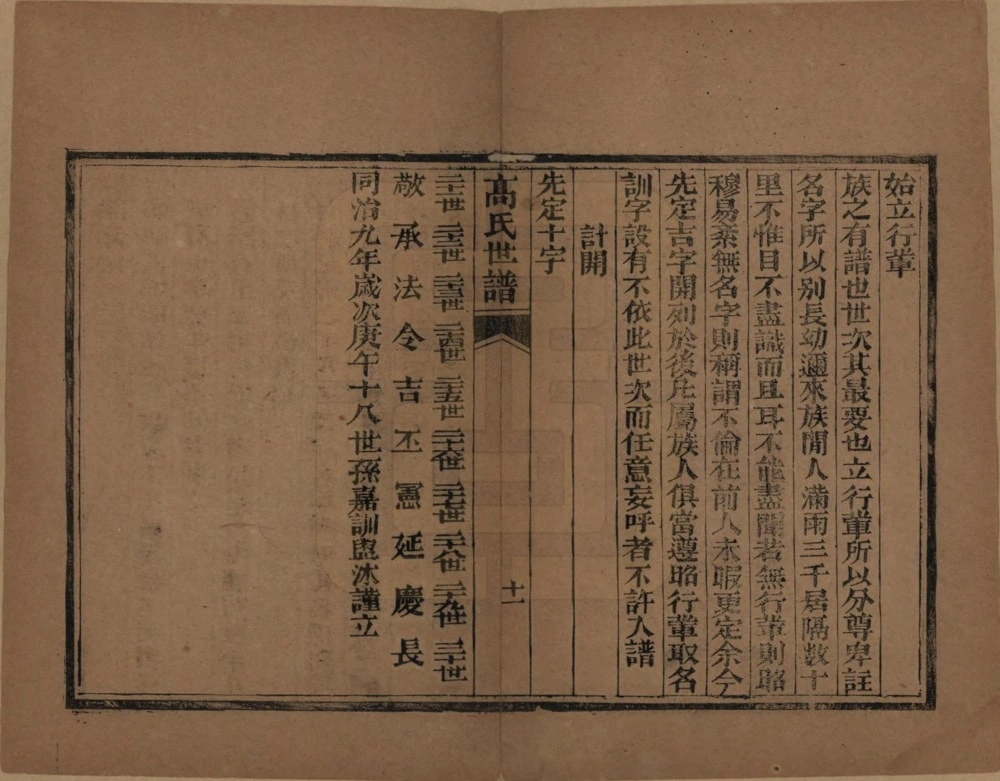 始立行輩
族之有譜也世次其最要也立行輩所以分尊卑註
名字所以别長幼邇來族閒人滿兩三千居隔數十
里不惟目不盡識而且耳不能盡聞若無行輩則昭
穆易紊無名字則稱謂不倫在前人未暇更定余今
先定吉字開列於後凡屬族人俱當遵昭行輩取名
訓字設有不依此世次而任意妄呼者不許入譜
計開
先定十字
高氏世譜
十一
二十一世 二十二世 二十三世 二十四世 二十五世 二十六世 二十七世 二十八世 二十九世 三十世
敬承法令吉丕憲延慶長
同治九年歲次庚午十八世孫嘉訓盥沐謹立